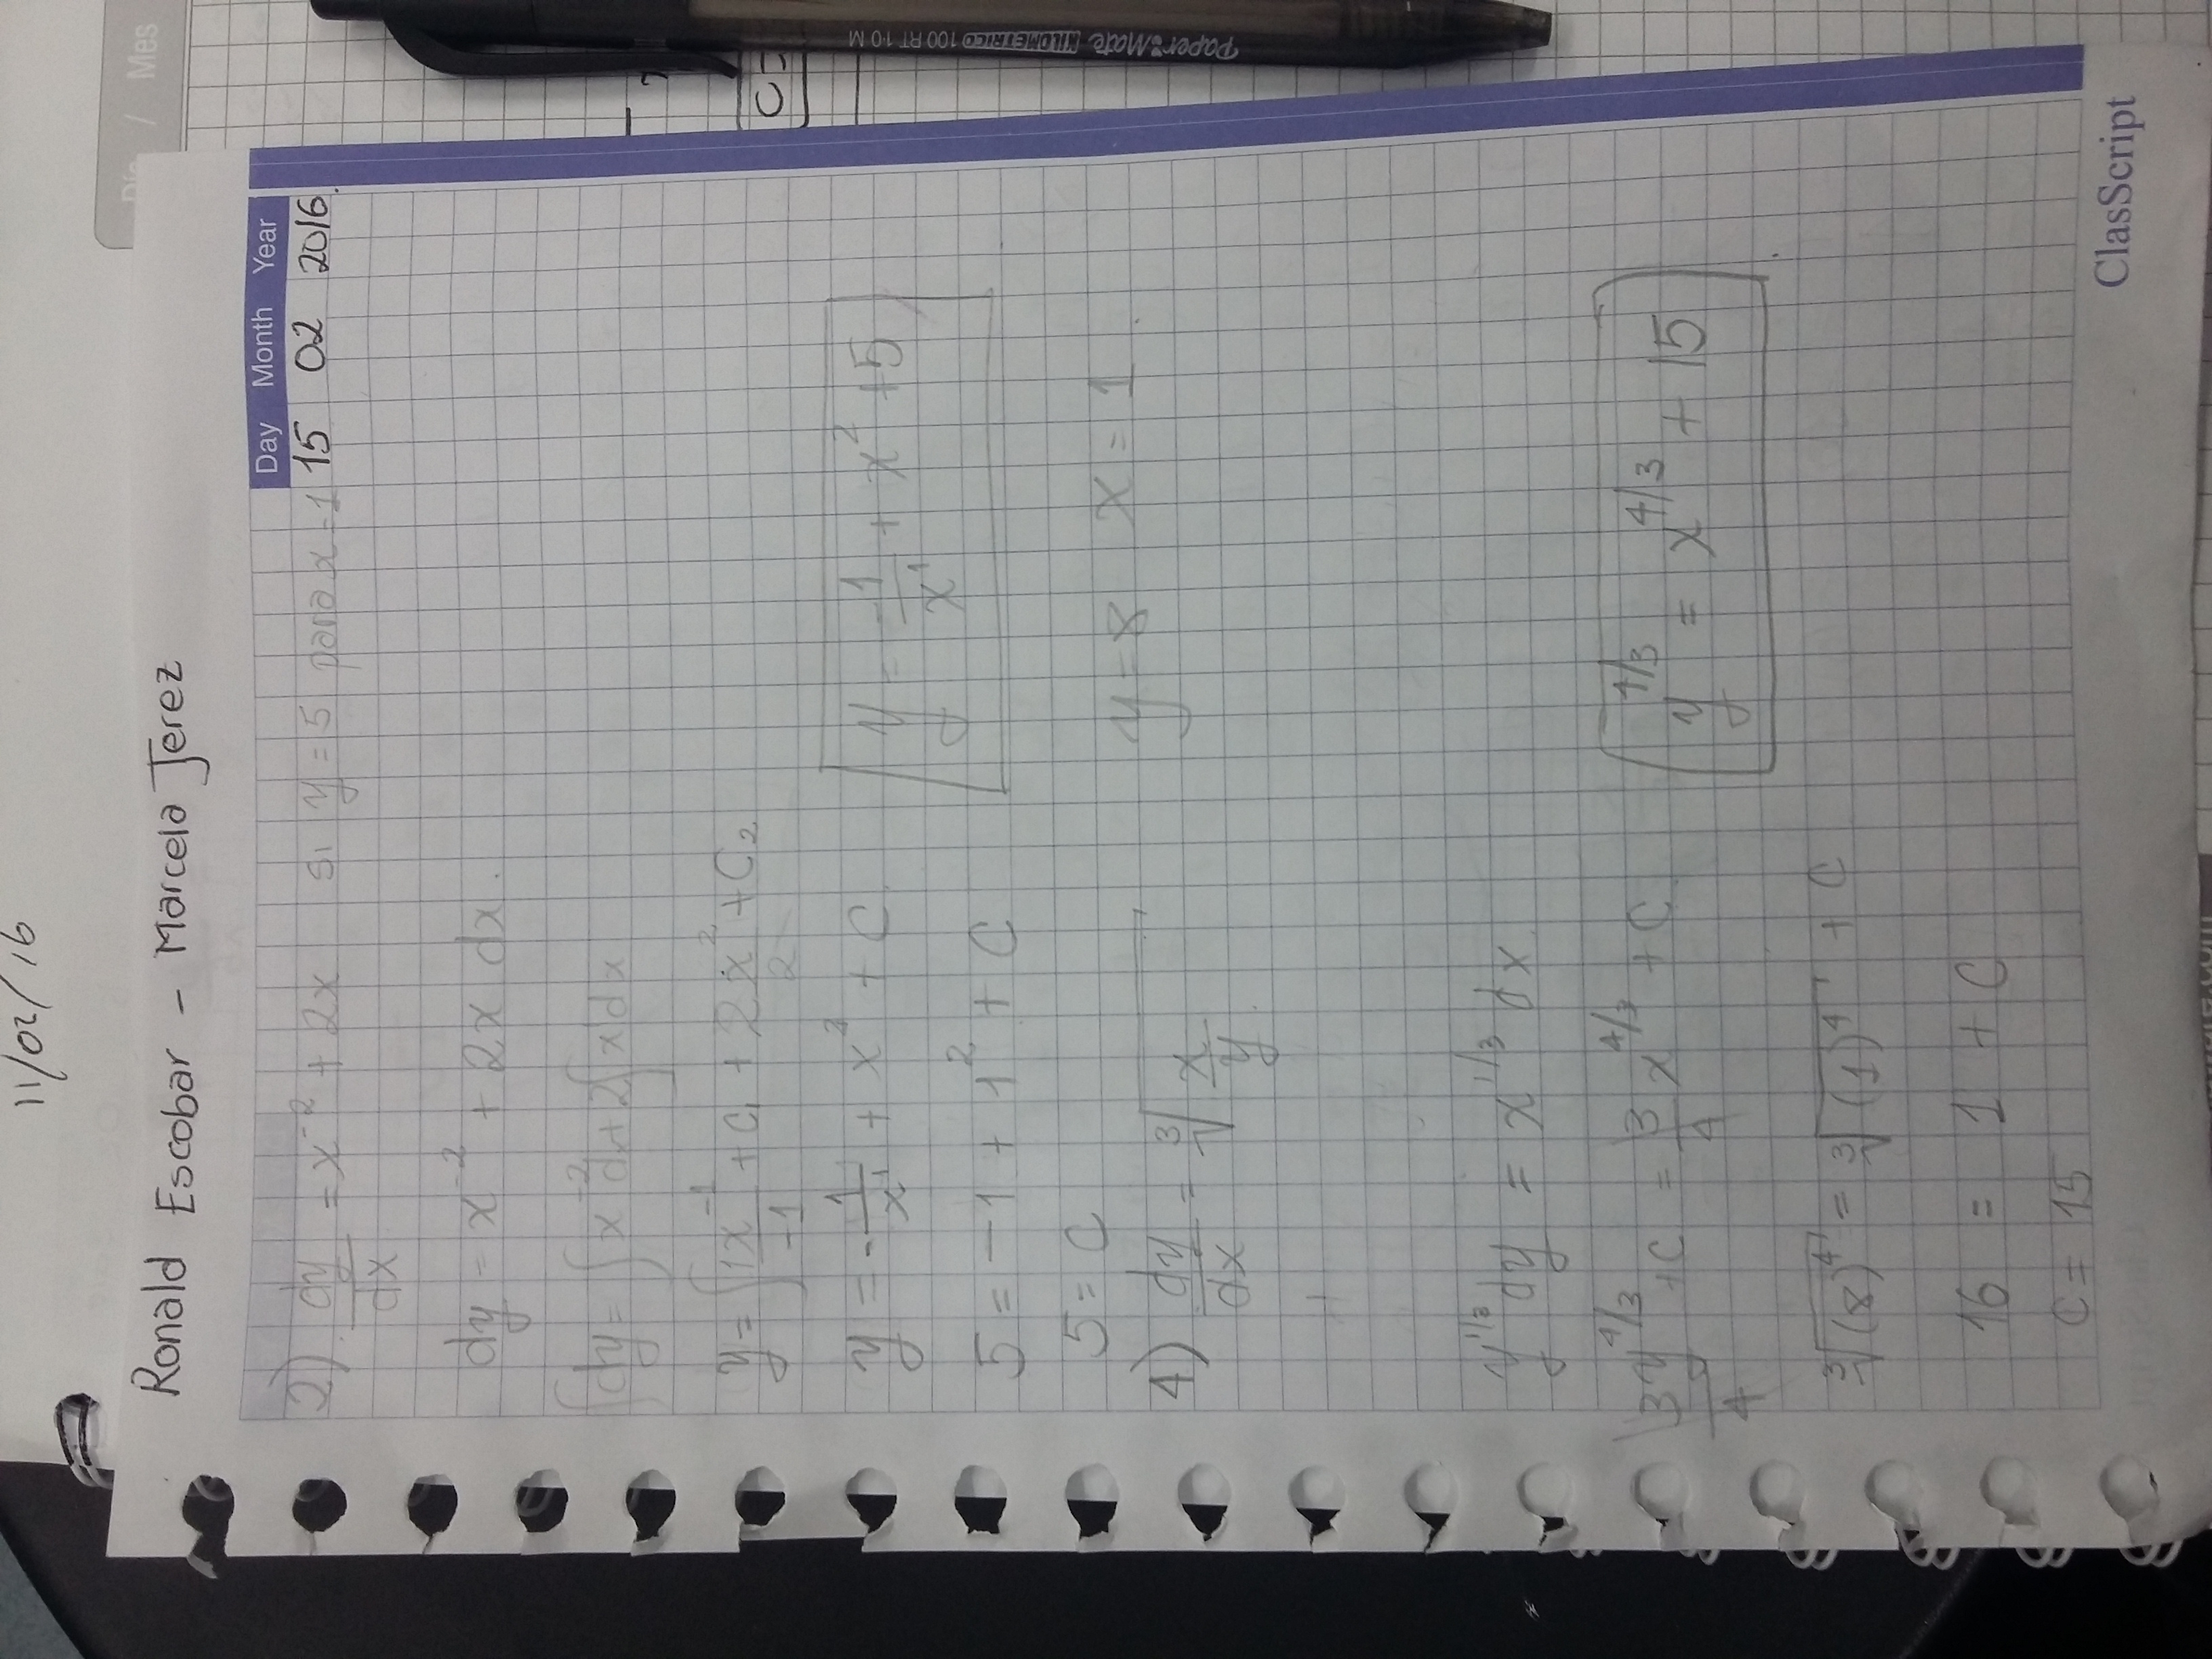 11/02/16
Día / Mes
Ronald Escobar - Marcela Jerez
Day Month Year
15 02 2016.
2) dy/dx = x^-2 + 2x si y = 5 para x = 1
dy = x^-2 + 2x dx.
∫dy = ∫x^-2 dx + 2∫x dx
y = ∫ 1x^-1/-1 + C1 + 2x^2/2 + C2
y = -1/x^1 + x^2 + C
y = -1/x^1 + x^2 + 5
5 = -1 + 1^2 + C
5 = C
y = 8 x = 1.
4) dy/dx = ∛(x/y)
y^1/3 dy = x^1/3 dx
3/4 y^4/3 + C = 3/4 x^4/3 + C
y^4/3 = x^4/3 + 15
∛(8)^4 = ∛(1)^4 + C
16 = 1 + C
C = 15
ClasScript
Paper Mate KILOMETRICO 100 RT 1.0 M